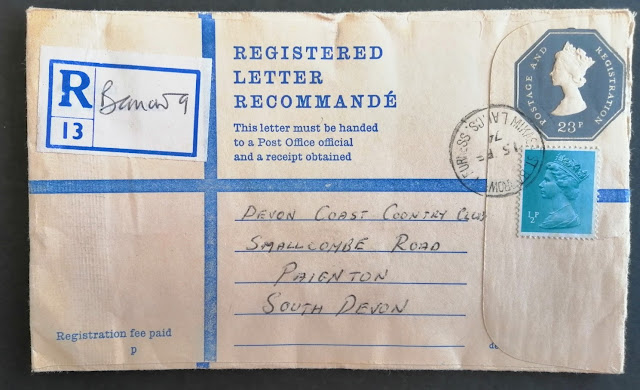 REGISTERED
LETTER
RECOMMANDÉ
This letter must be handed
to a Post Office official
and a receipt obtained
R
13
Barrow 9
POSTAGE AND REGISTRATION
23P
½P
FURNESS. LANCS.
DEVON COAST COUNTRY CLUB
SMALLCOMBE ROAD
PAIGNTON
SOUTH DEVON
Registration fee paid
p